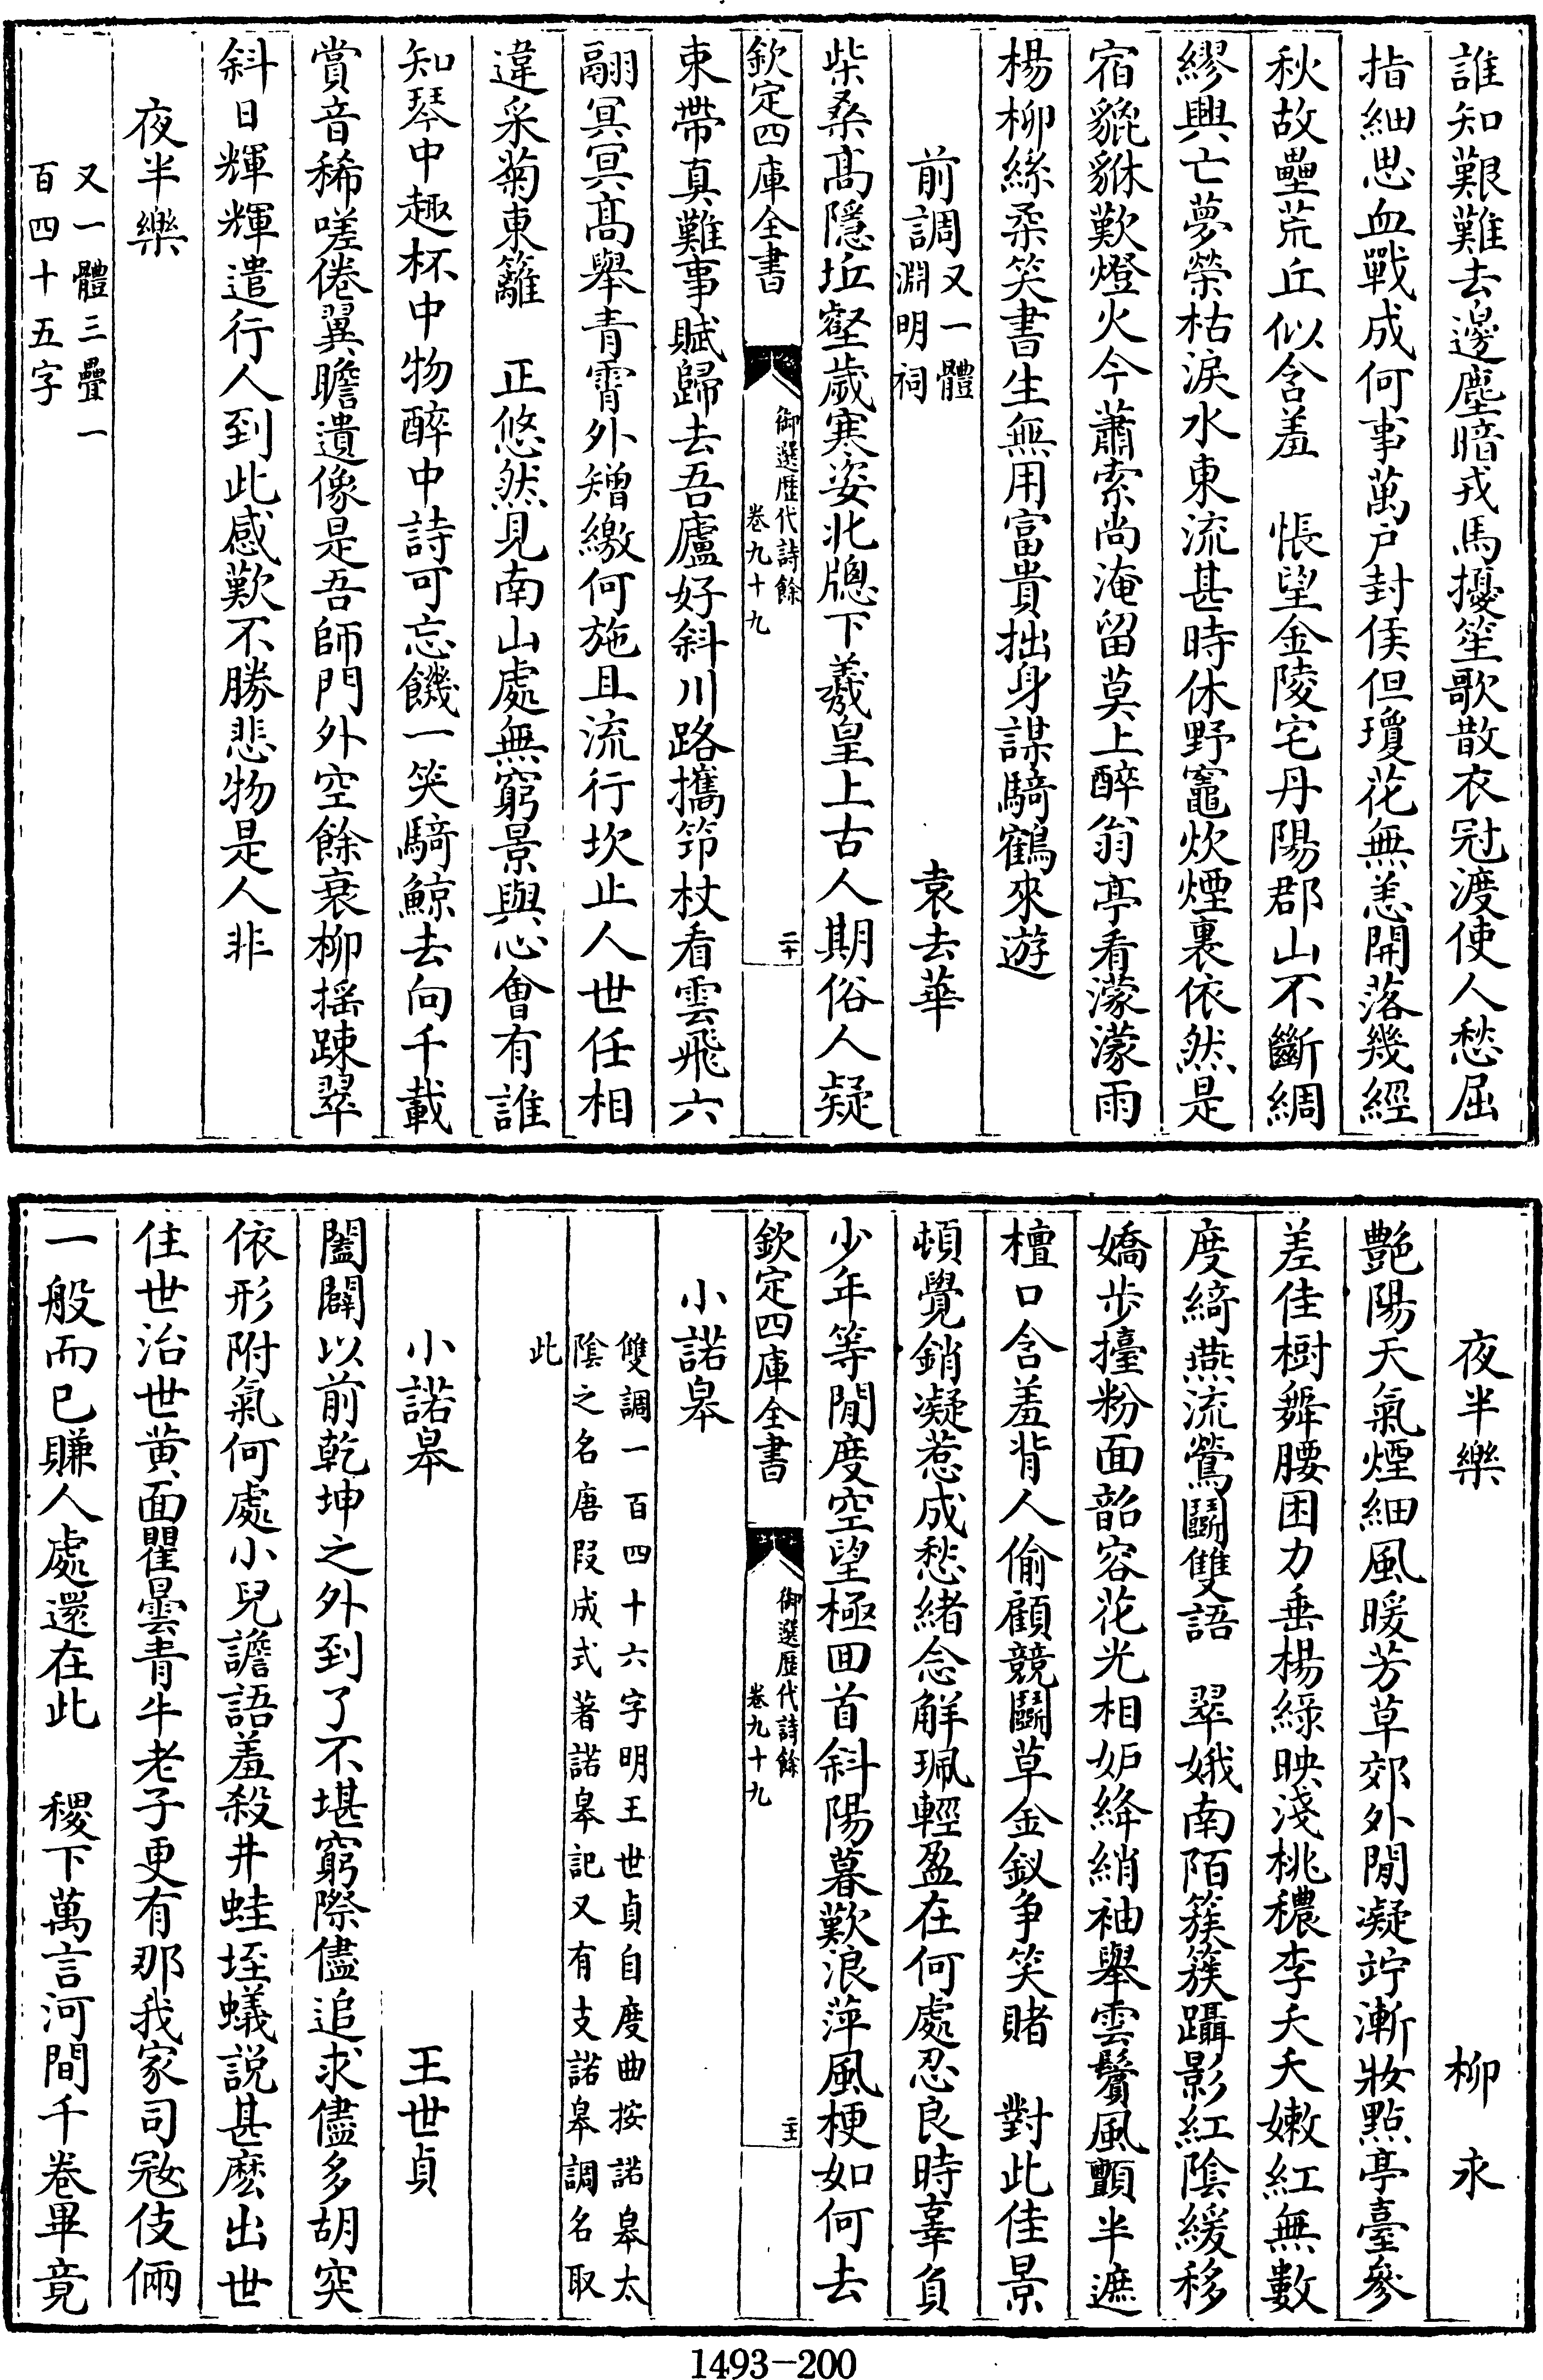 誰知艱難去邊塵暗戎馬擾笙歌散衣冠渡使人愁屈
指細思血戰成何事萬戶封侯但瓊花無恙開落幾經
秋故壘荒丘似含羞　悵望金陵宅丹陽郡山不斷綢
繆興亡夢榮枯淚水東流甚時休野竈炊煙裏依然是
宿貔貅歎燈火今蕭索尚淹留莫上醉翁亭看濛濛雨
楊柳絲柔笑書生無用富貴拙身謀騎鶴來遊
前調又一體淵明祠　袁去華
柴桑髙隱丘壑歲寒姿北牕下羲皇上古人期俗人疑
欽定四庫全書　御選歴代詩餘卷九十九　二十
束帶真難事賦歸去吾廬好斜川路攜笻杖看雲飛六
翮冥冥髙舉青霄外矰繳何施且流行坎止人世任相
違采菊東籬　正悠然見南山處無窮景與心會有誰
知琴中趣杯中物醉中詩可忘饑一笑騎鯨去向千載
賞音稀嗟倦翼瞻遺像是吾師門外空餘衰柳揺踈翠
斜日輝輝遣行人到此感歎不勝悲物是人非
夜半樂
又一體三疊一
百四十五字
夜半樂　柳永
艷陽天氣煙細風暖芳草郊外閒凝竚漸妝點亭臺參
差佳樹舞腰困力垂楊綠映淺桃穠李夭夭嫩紅無數
度綺燕流鶯鬬雙語　翠娥南陌簇簇躡影紅陰緩移
嬌步擡粉面韶容花光相妒絳綃袖舉雲鬢風顫半遮
檀口含羞背人偷顧競鬬草金釵爭笑賭　對此佳景
頓覺銷凝惹成愁緒念解珮輕盈在何處忍良時辜負
少年等閒度空望極囬首斜陽暮歎浪萍風梗如何去
欽定四庫全書　御選歴代詩餘卷九十九　二十一
小諾臯
雙調一百四十六字明王世貞自度曲按諾臯太
陰之名唐段成式著諾臯記又有支諾臯調名取
此
小諾臯　王世貞
闔闢以前乾坤之外到了不堪窮際儘追求儘多胡突
依形附氣何處小兒譫語羞殺井蛙垤蟻説甚麽出世
住世治世黄面瞿曇青牛老子更有那我家司冦伎倆
一般而已賺人處還在此　稷下萬言河間千卷畢竟
1493—200